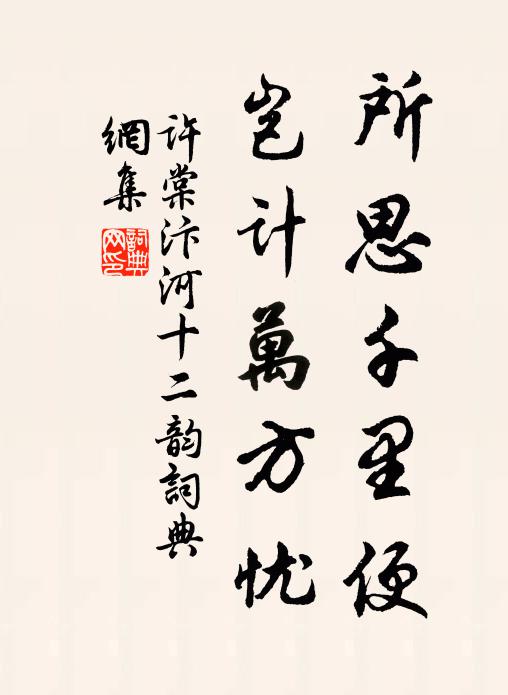 所思千里便
岂计萬方忧
许棠汴河十二韵詞典
網集
詞典
网印